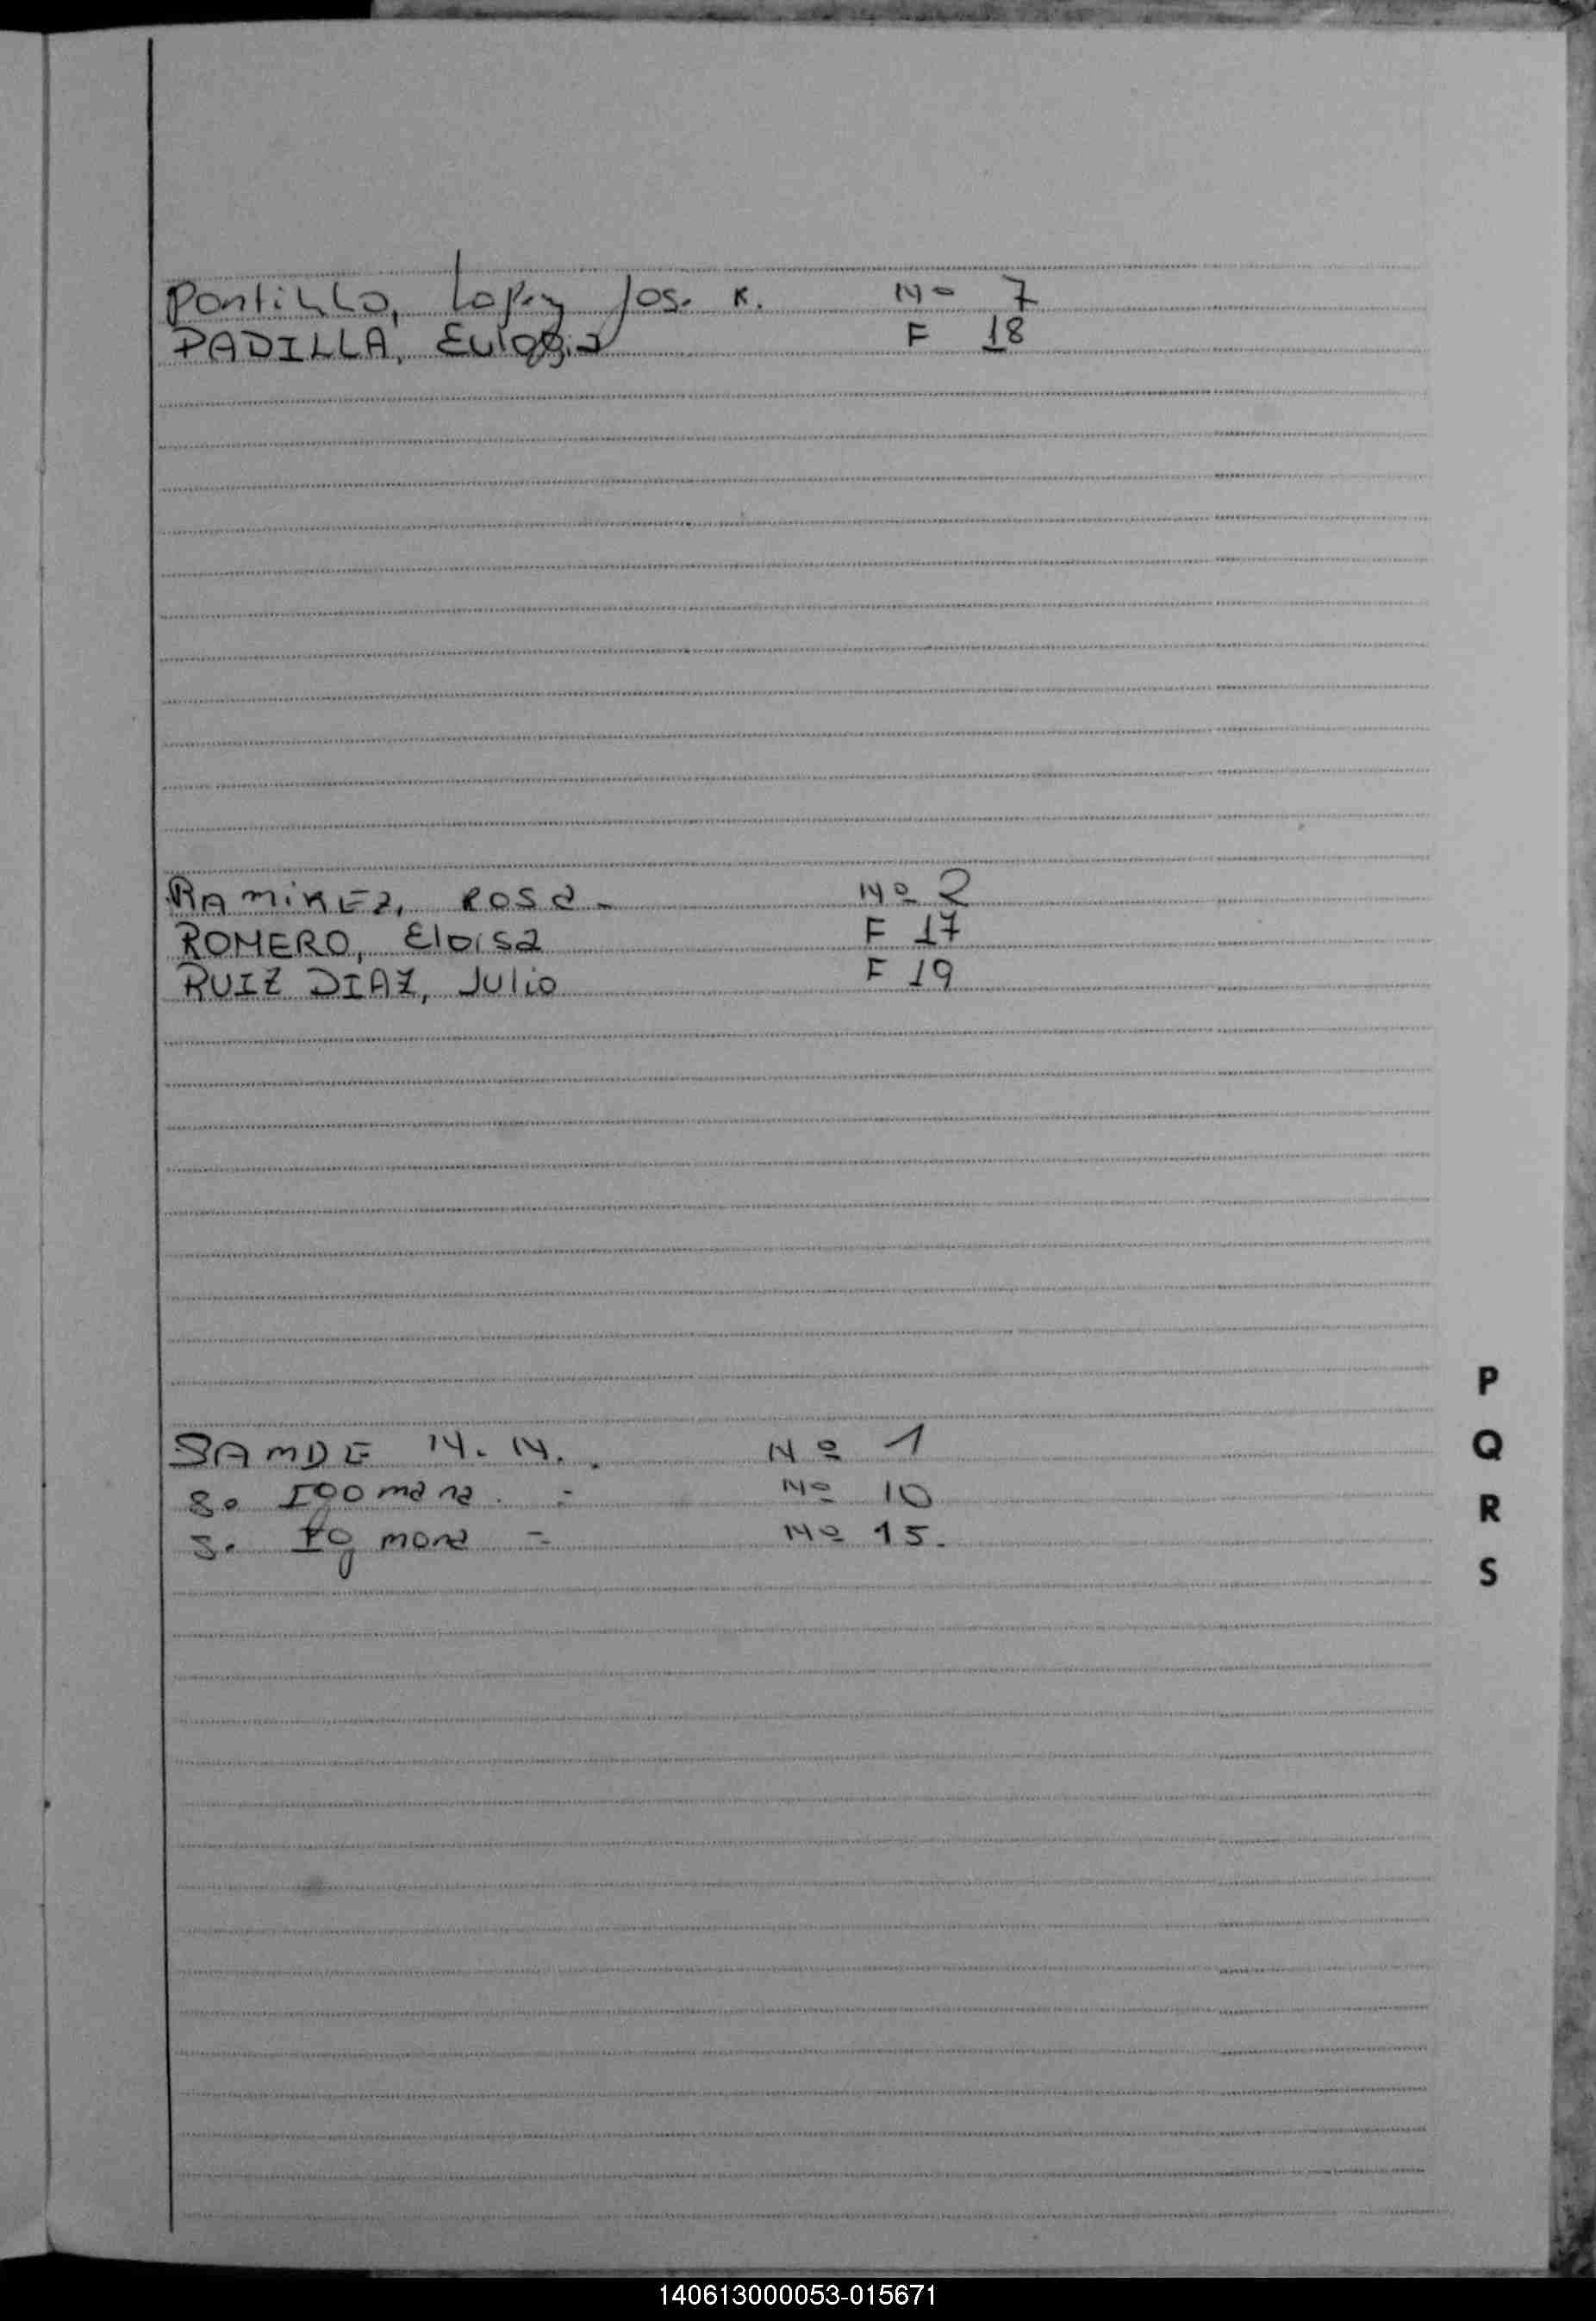 PortiLLo, Lopez Jose R. Nº 7
PADILLA, Eulogia F 18
RAMiREZ, ROSA Nº 2
ROMERO, Eloisa F 17
RUIZ DIAZ, Julio F 19
N. N. Nº 1
S. Nº 10
S. Nº 15.
P
Q
R
S
140613000053-015671